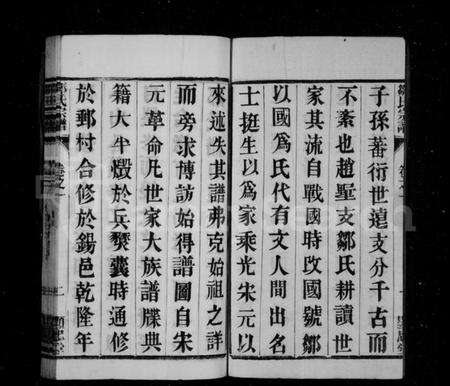 子孫蕃衍世遠支分千古而
不紊也趙墅支鄒氏耕讀世
家其流自戰國時改國號鄒
以國爲氏代有文人間出名
士挺生以爲家乘光宋元以
來述失其譜弗克始祖之詳
而旁求博訪始得譜圖自宋
元革命凡世家大族譜牒典
籍大半燬於兵燹曩時通修
於郵村合修於錫邑乾隆年